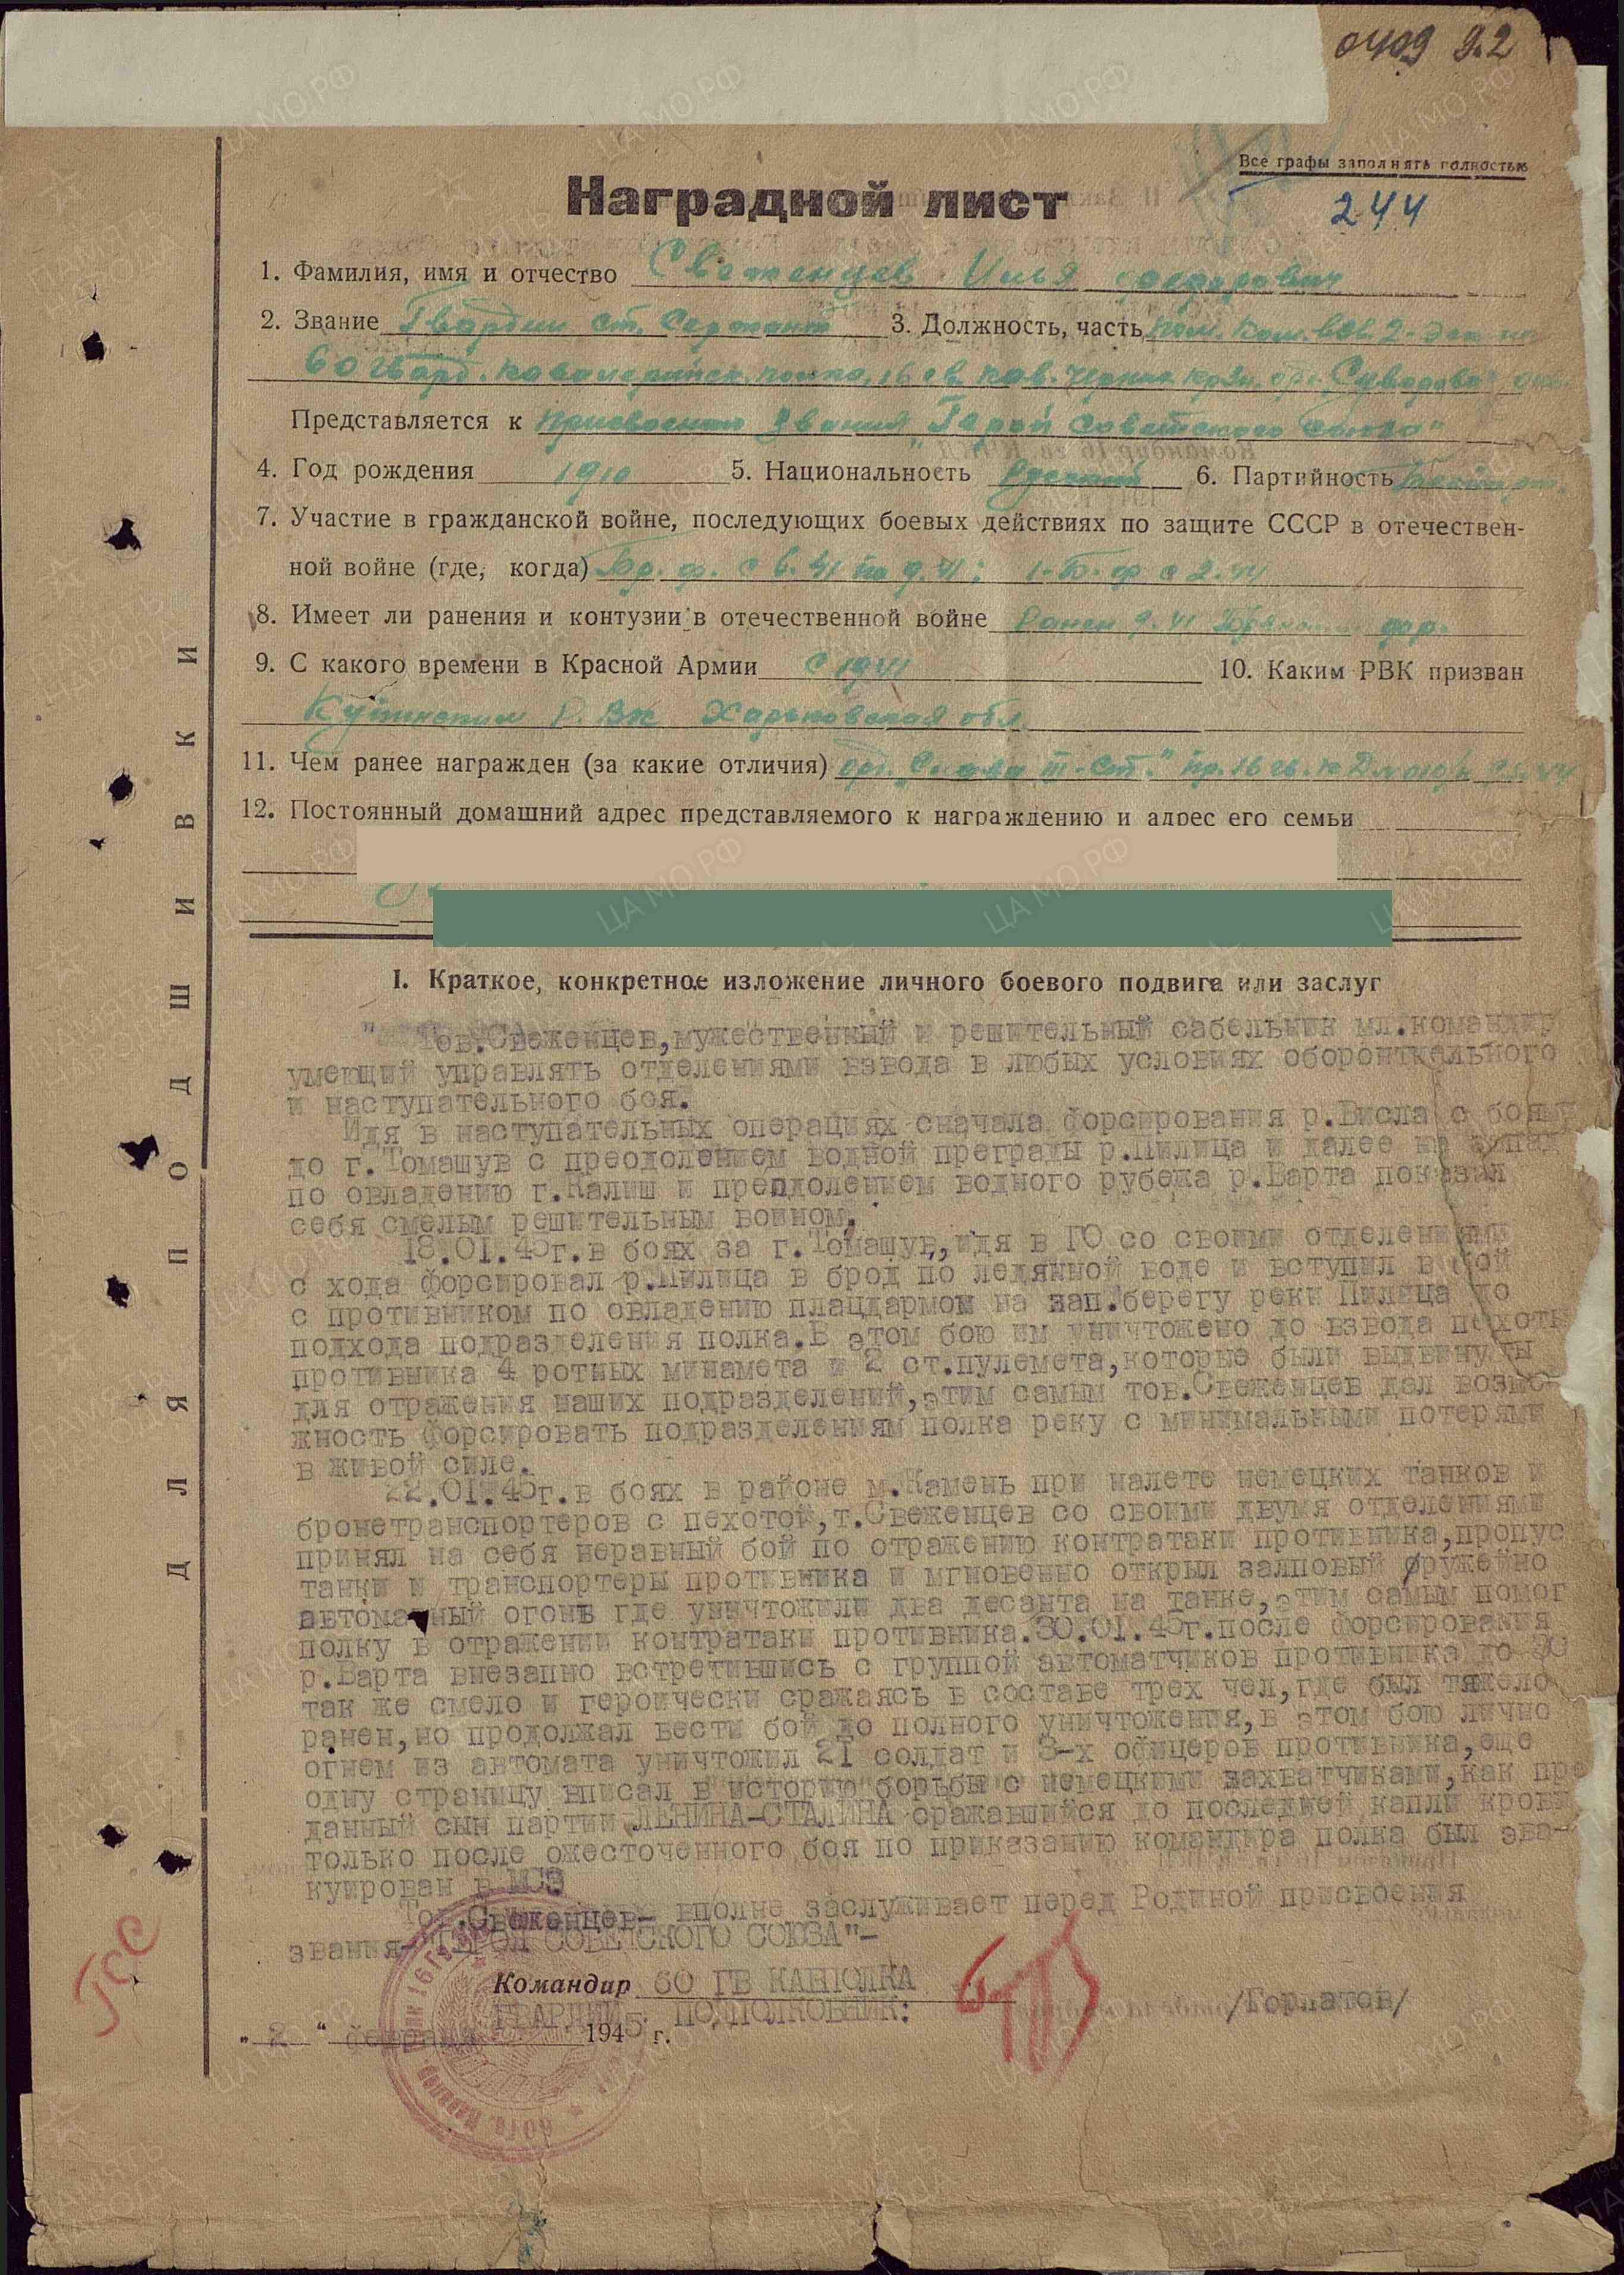 0409 9.2
Все графы заполнять полностью
244
Наградной лист
1. Фамилия, имя и отчество Свеженцев Илья Федорович
2. Звание Гвардии ст. Сержант 3. Должность, часть пом. ком. взв. 2-
60 гвард. кавалерийск. полка, 16 гв. кав. Черниг. Крзн. орд. Суворова
Представляется к присвоению звания "Герой Советского Союза"
4. Год рождения 1910 5. Национальность Русский 6. Партийность
7. Участие в гражданской войне, последующих боевых действиях по защите СССР в отечествен-
ной войне (где, когда) Бр. ф. с 6.41 по 9.41; 1-Б-ф с 2.44
8. Имеет ли ранения и контузии в отечественной войне Ранен 9.41 Брянский фр.
9. С какого времени в Красной Армии С 1941 10. Каким РВК призван
Р.ВК Харьковская обл.
11. Чем ранее награжден (за какие отличия) орд. "Слава III-ст." пр. 16 гв. КД
12. Постоянный домашний адрес представляемого к награждению и адрес его семьи
I. Краткое, конкретное изложение личного боевого подвига или заслуг
" Тов.Свеженцев,мужественный и решительный сабельник мл.командир
умеющий управлять отделениями взвода в любых условиях оборонткельного
и наступательного боя.
Идя в наступательных операциях сначала форсирования р.Висла с боями
до г.Томашув с преодолением водной преграды р.Пилица и далее на запад
по овладению г.Калиш и преодолением водного рубежа р.Варта показал
себя смелым решительным воином.
18.01.45г.в боях за г.Томашув,идя в ГО со своими отделениями
с хода форсировал р.Пилица в брод по ледянной воде и вступил в бой
с противником по овладению плацдармом на зап.берегу реки Пилица до
подхода подразделения полка.В этом бою им уничтожено до взвода пехоты
противника 4 ротных минамета и 2 ст.пулемета,которые были выдвинуты
для отражения наших подразделений,этим самым тов.Свеженцев дал возмо-
жность форсировать подразделениям полка реку с минимальными потерями
в живой силе.
22.01.45г.в боях в районе м.Камень при налете немецких танков и
бронетранспортеров с пехотой,т.Свеженцев со своими двумя отделениями
принял на себя неравный бой по отражению контратаки противника,пропус
танки и транспортеры противника и мгновенно открыл залповый оружейно
автоматный огонь где уничтожили два десанта на танке,этим самым помог
полку в отражении контратаки противника.30.01.45г.после форсирования
р.Варта внезапно встретившись с группой автоматчиков противника до 30
так же смело и героически сражаясь в составе трех чел,где был тяжело
ранен,но продолжал вести бой до полного уничтожения,в этом бою лично
огнем из автомата уничтожил 21 солдат и 3-х офицеров противника,еще
одну страницу вписал в историю борьбы с немецкими захватчиками,как пре
данный сын партии ЛЕНИНА-СТАЛИНА сражавшийся до последней капли крови
только после ожесточенного боя по приказанию командира полка был эва-
куирован в МСЭ
Тов.Свеженцев- вполне заслуживает перед Родиной присвоения
звания-"ГЕРОЯ СОВЕТСКОГО СОЮЗА"-
Командир 60 ГВ КАВПОЛКА
ГВАРДИИ ПОДПОЛКОВНИК: /Горлатов/
„ 2 “ февраля 1945 г.
ДЛЯ ПОДШИВКИ
ГСС
ЦА МО.РФ
ПАМЯТЬ НАРОДА